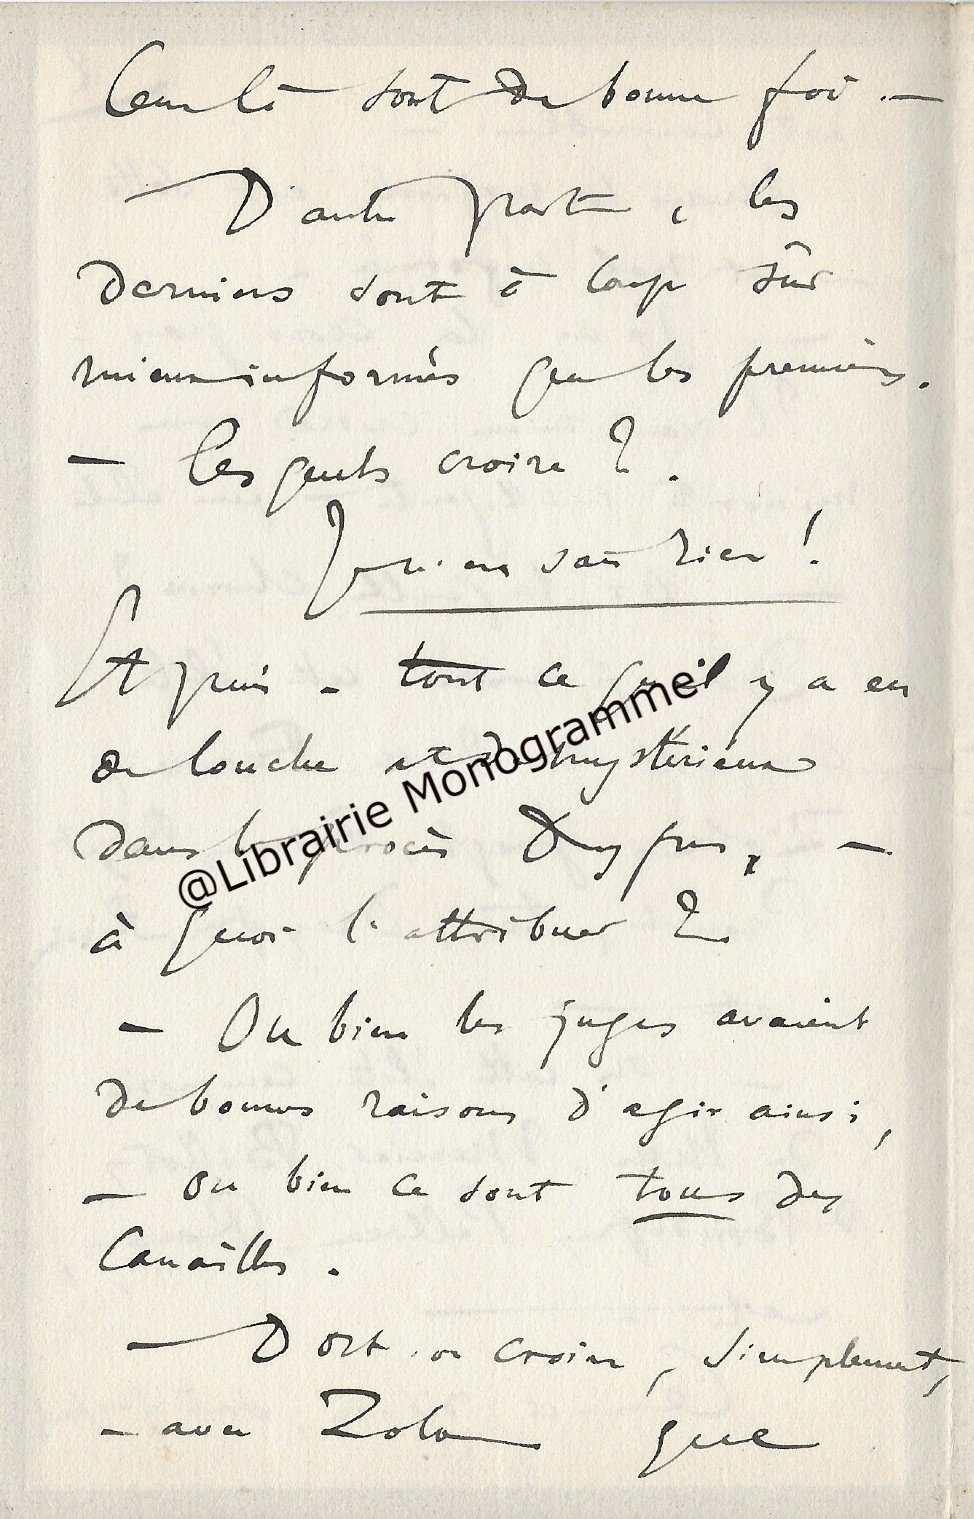 Ceux là sont de bonne foi. —
D'autre part, les
derniers sont à coup sûr
mieux informés que les premiers.
— Lesquels croire ?.
Je n'en sais rien !
Et puis — tout ce qu'il y a eu
de louche et de mystérieux
dans le procès Dreyfus, —
à quoi l'attribuer ?
— Ou bien les juges avaient
de bonnes raisons d'agir ainsi,
— ou bien ce sont tous des
Canailles.
— Doit-on croire, simplement,
— avec Zola que
@Librairie Monogramme